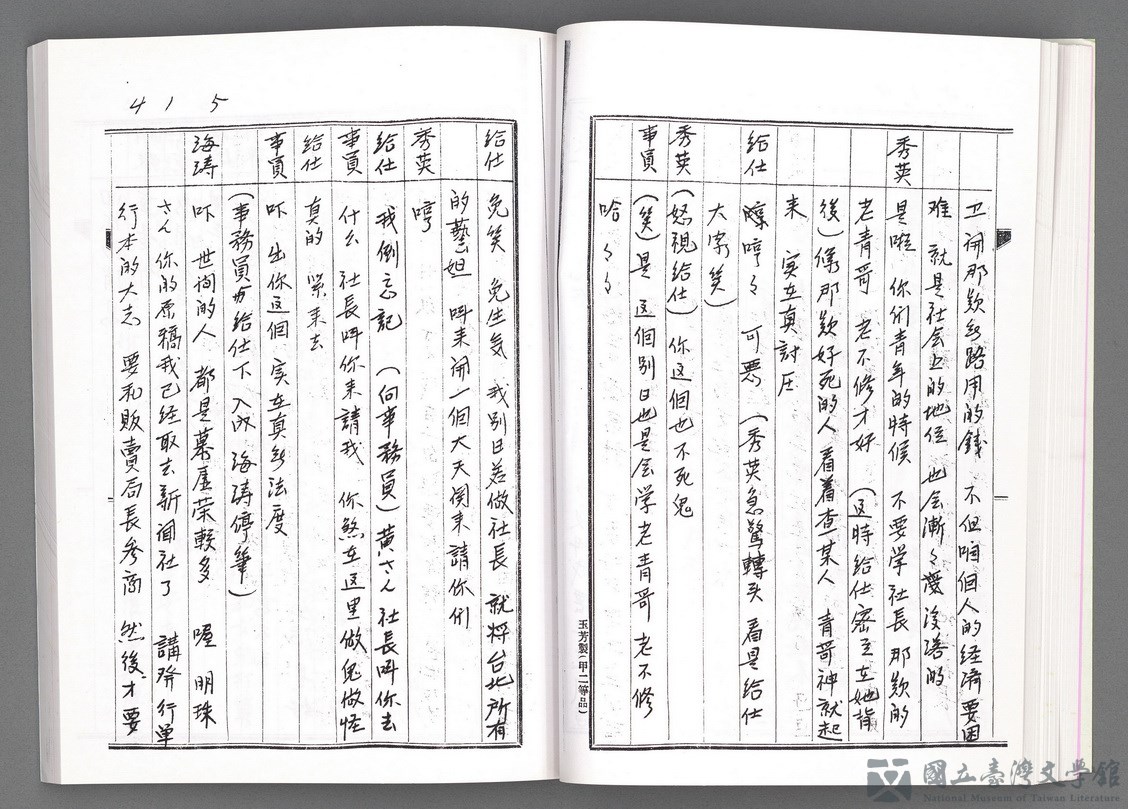 卫 开那款無路用的錢 不但咱個人的経済要困
难 就是社会上的地位 也会漸々
秀英 是啦 你们青年的時候 不要学社長那款的
老青哥 老不修才好 (這時給仕密立在她背
後)像那款好死的人 看着查某人 青哥神就起
来 实在真討圧
給仕 哼々 可悪 (秀英急驚轉头 看是給仕
大家笑)
秀英 (怒視給仕) 你這個也不死鬼
事員 (笑)是 這個別日也是会学老青哥 老不修
哈々々
玉芳製(甲二等品)
給仕 免笑 免生気 我別日若做社長 就将台北所有
的藝妲 叫来開一個大天関来請你们
秀英 哼
給仕 我倒忘記 (向事務員)黄さん 社長叫你去
事員 什么 社長叫你来請我 你煞在這里做鬼做怪
給仕 真的 緊来去
事員 吓 出你這個 实在真無法度
(事務員与給仕下 入内 海涛停筆)
海涛 吓 世间的人 都是慕虚荣較多 喔 明珠
さん 你的原稿我已经取去新闻社了 講発行単
行本的大志 要和販賣局長参商 然後才要
415
國立臺灣文学館
National Museum of Taiwan Literature